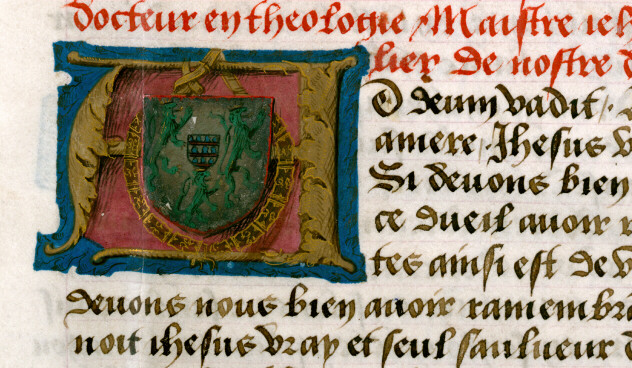 docteur en theologie Maistre ieh
lier de nostre
AD deum vadit.
amere Jhesus v
Si deuons bien
ce dueil auoir r
tes ainsi est de v
deuons nous bien auoir ramembra
noit ihesus vray et seul saulueur d